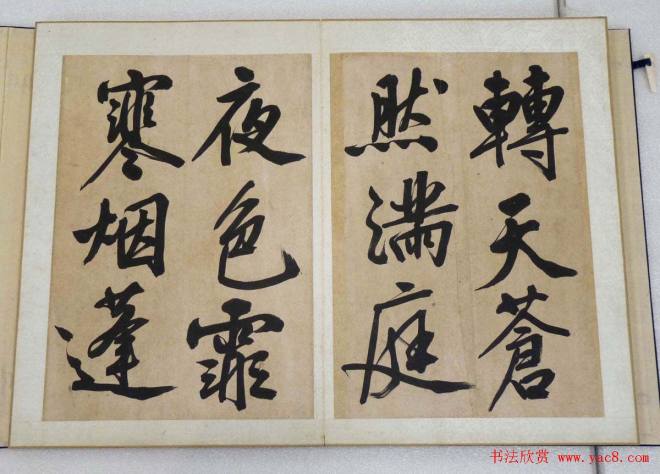 轉天蒼
然滿庭
夜色霏
寒烟蓬
书法欣赏 www.yac8.com